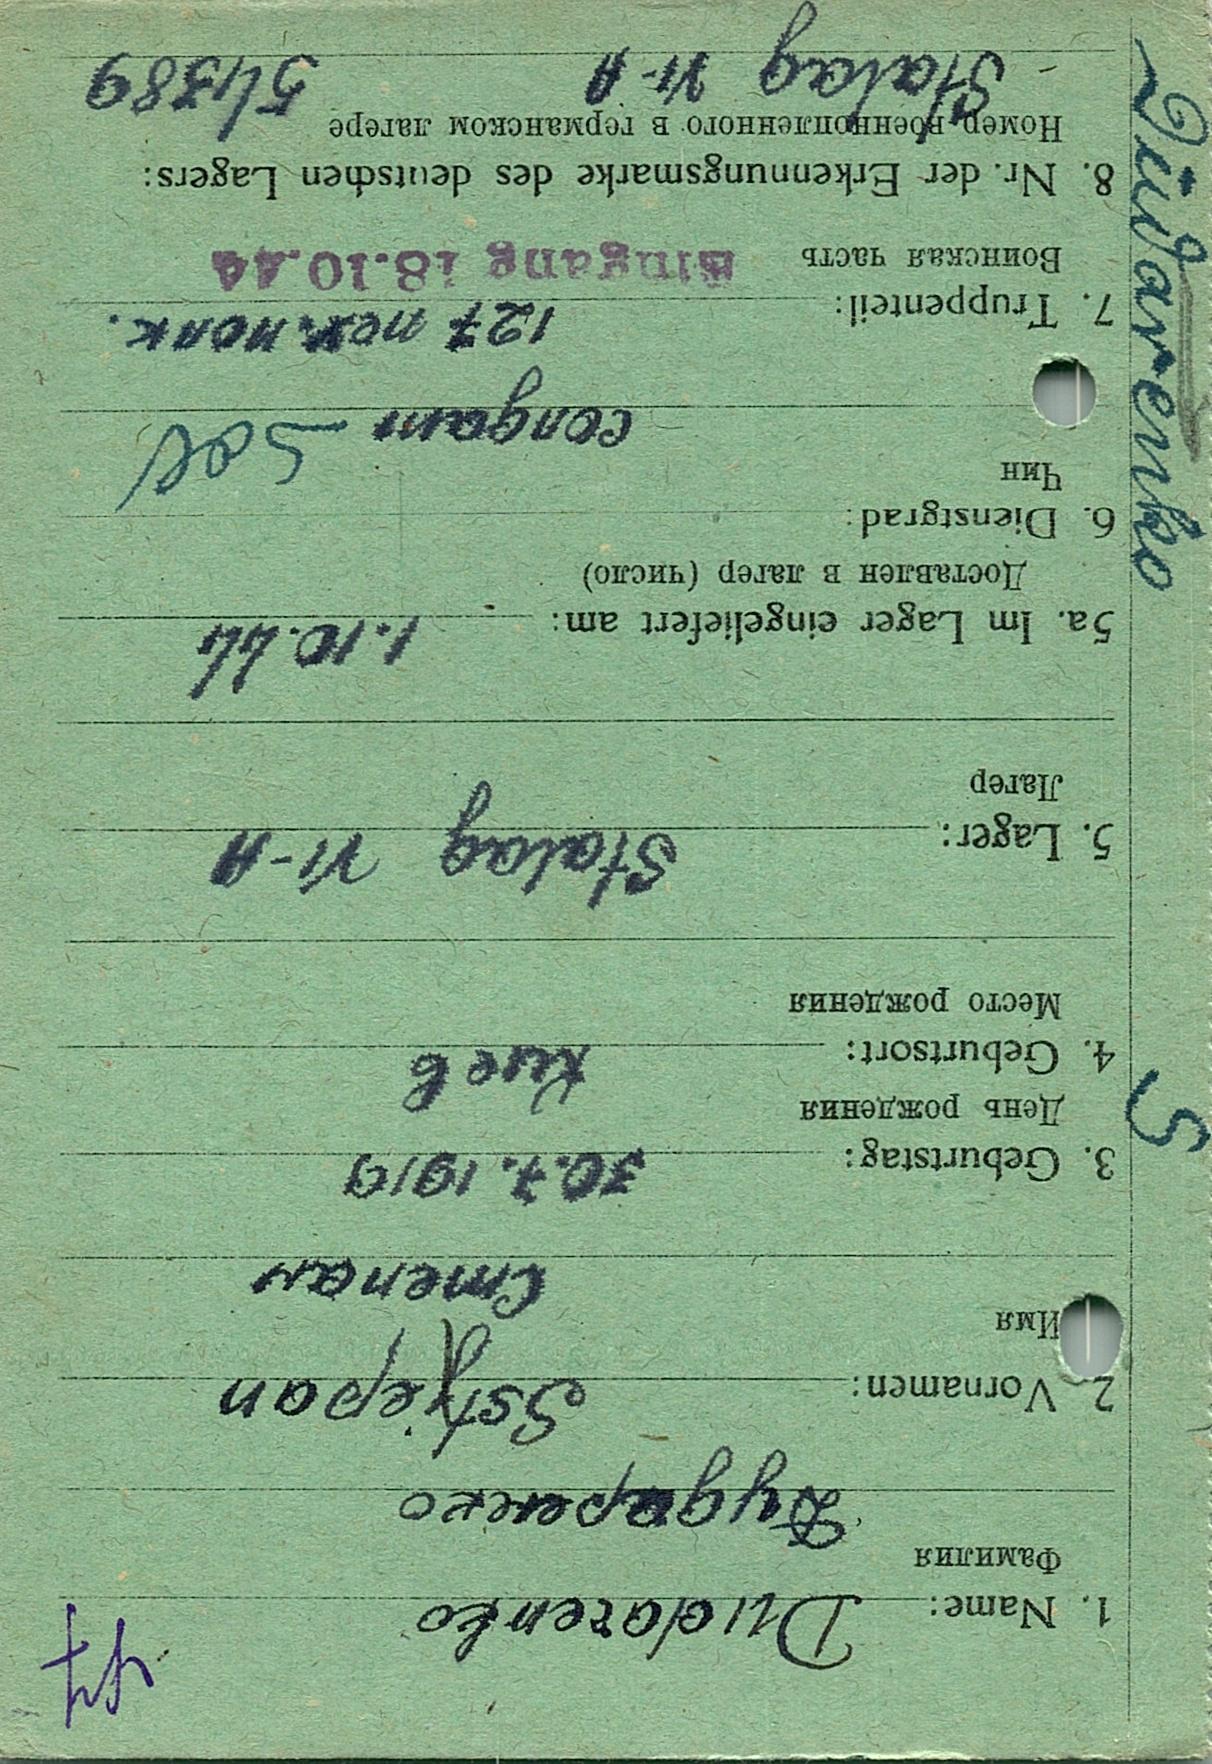 1. Name: Dudarenko
Фамилия
Дударенко
2. Vornamen: Sstjepan
Имя
Степан
3. Geburtstag: 30.7.1919
День рождения
4. Geburtsort: Киев
Место рождения
5. Lager: Stalag VI-A
Лагер
5a. Im Lager eingeliefert am: 1.10.44
Доставлен в лагер (число)
6. Dienstgrad:
Чин
солдат Sol
7. Truppenteil: 127 пех. полк.
Воинская часть Eingang 18.10.44
8. Nr. der Erkennungsmarke des deutschen Lagers:
Номер военнопленного в германском лагере
Stalag VI-A 54389
Dudarenko
S